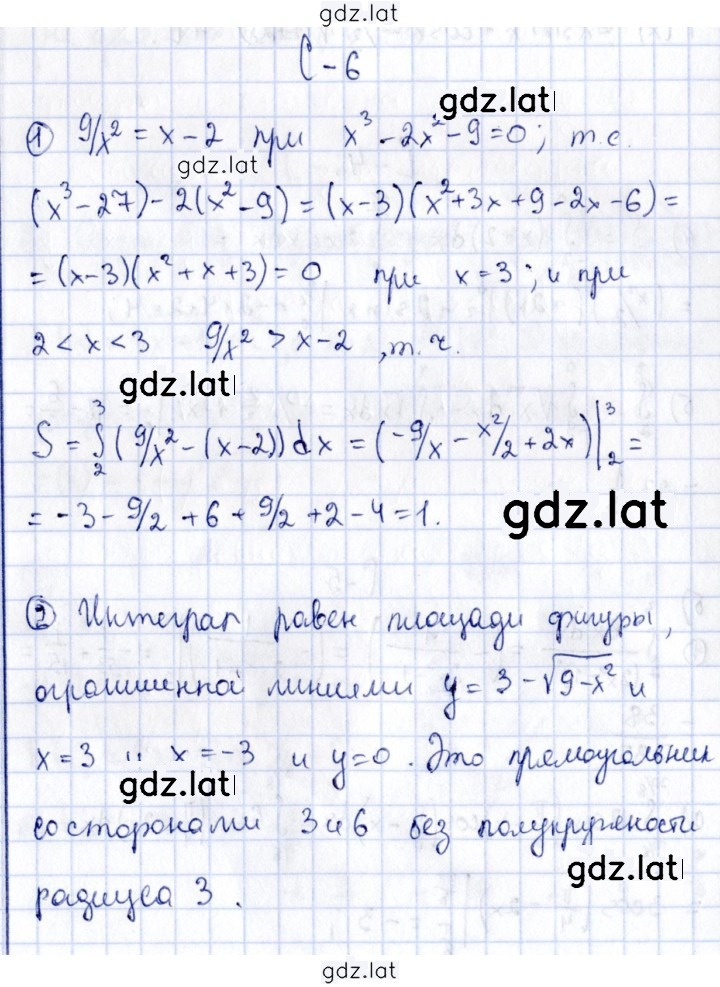 gdz.lat
С-6
gdz.lat
① 9/x² = x-2 при x³-2x²-9=0; т.е.
gdz.lat
(x³-27)-2(x²-9) = (x-3)(x²+3x+9-2x-6) =
= (x-3)(x²+x+3) = 0 при x=3; и при
2<x<3 9/x² > x-2, т.ч.
gdz.lat
S = ∫₂³ (9/x² - (x-2))dx = (-9/x - x²/2 + 2x)|₂³ =
= -3 - 9/2 + 6 + 9/2 + 2 - 4 = 1.
gdz.lat
② Интеграл равен площади фигуры,
ограниченной линиями y = 3 - √(9-x²) и
x=3 и x=-3 и y=0. Это прямоугольник
gdz.lat
со сторонами 3 и 6 без полукружности
gdz.lat
радиуса 3.
gdz.lat